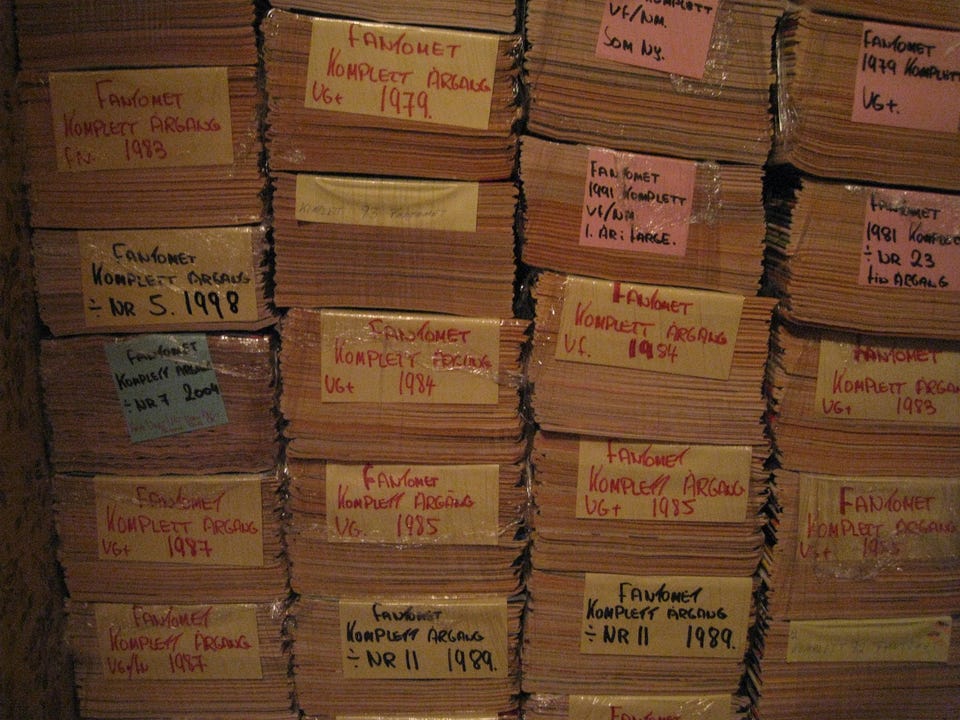 FANTOMET
KOMPLETT ÅRGANG
FN. 1983
FANTOMET
KOMPLETT ÅRGANG
÷ NR 5. 1998
FANTOMET
KOMPLETT
÷ NR 7 2004
FANTOMET
KOMPLETT ÅRGANG
VG+ 1987
FANTOMET
KOMPLETT ÅRGANG
1987
FANTOMET
KOMPLETT ÅRGANG
VG+ 1979.
KOMPLETT 93 FANTOMET
FANTOMET
KOMPLETT ÅRGANG
VG+ 1984
FANTOMET
KOMPLETT ÅRGANG
VG. 1985
FANTOMET
KOMPLETT ÅRGANG
÷ NR 11 1989.
KOMPLETT
VF/NM.
SOM NY.
FANTOMET
1991 KOMPLETT
VF/NM
1. ÅR i FARGE.
FANTOMET
KOMPLETT ÅRGANG
VF. 1984
FANTOMET
KOMPLETT ÅRGANG
VG+ 1985
FANTOMET
KOMPLETT ÅRGANG
÷ NR 11 1989.
FANTOMET
FANTOMET
1979 KOMPLETT
VG+.
FANTOMET
1981 KOMPLE
÷ NR 23
FIN ÅRGANG
FANTOMET
KOMPLETT ÅRGAN
VG+ 1983
FANTOMET
KOMPLETT ÅRGANG
VG+
KOMPLETT 92 FANTOMET